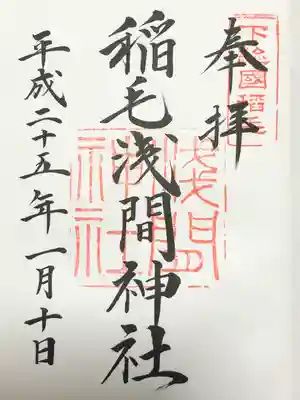 下總國稲毛
奉拝
稲毛浅間神社
浅間神社
平成二十五年一月十日